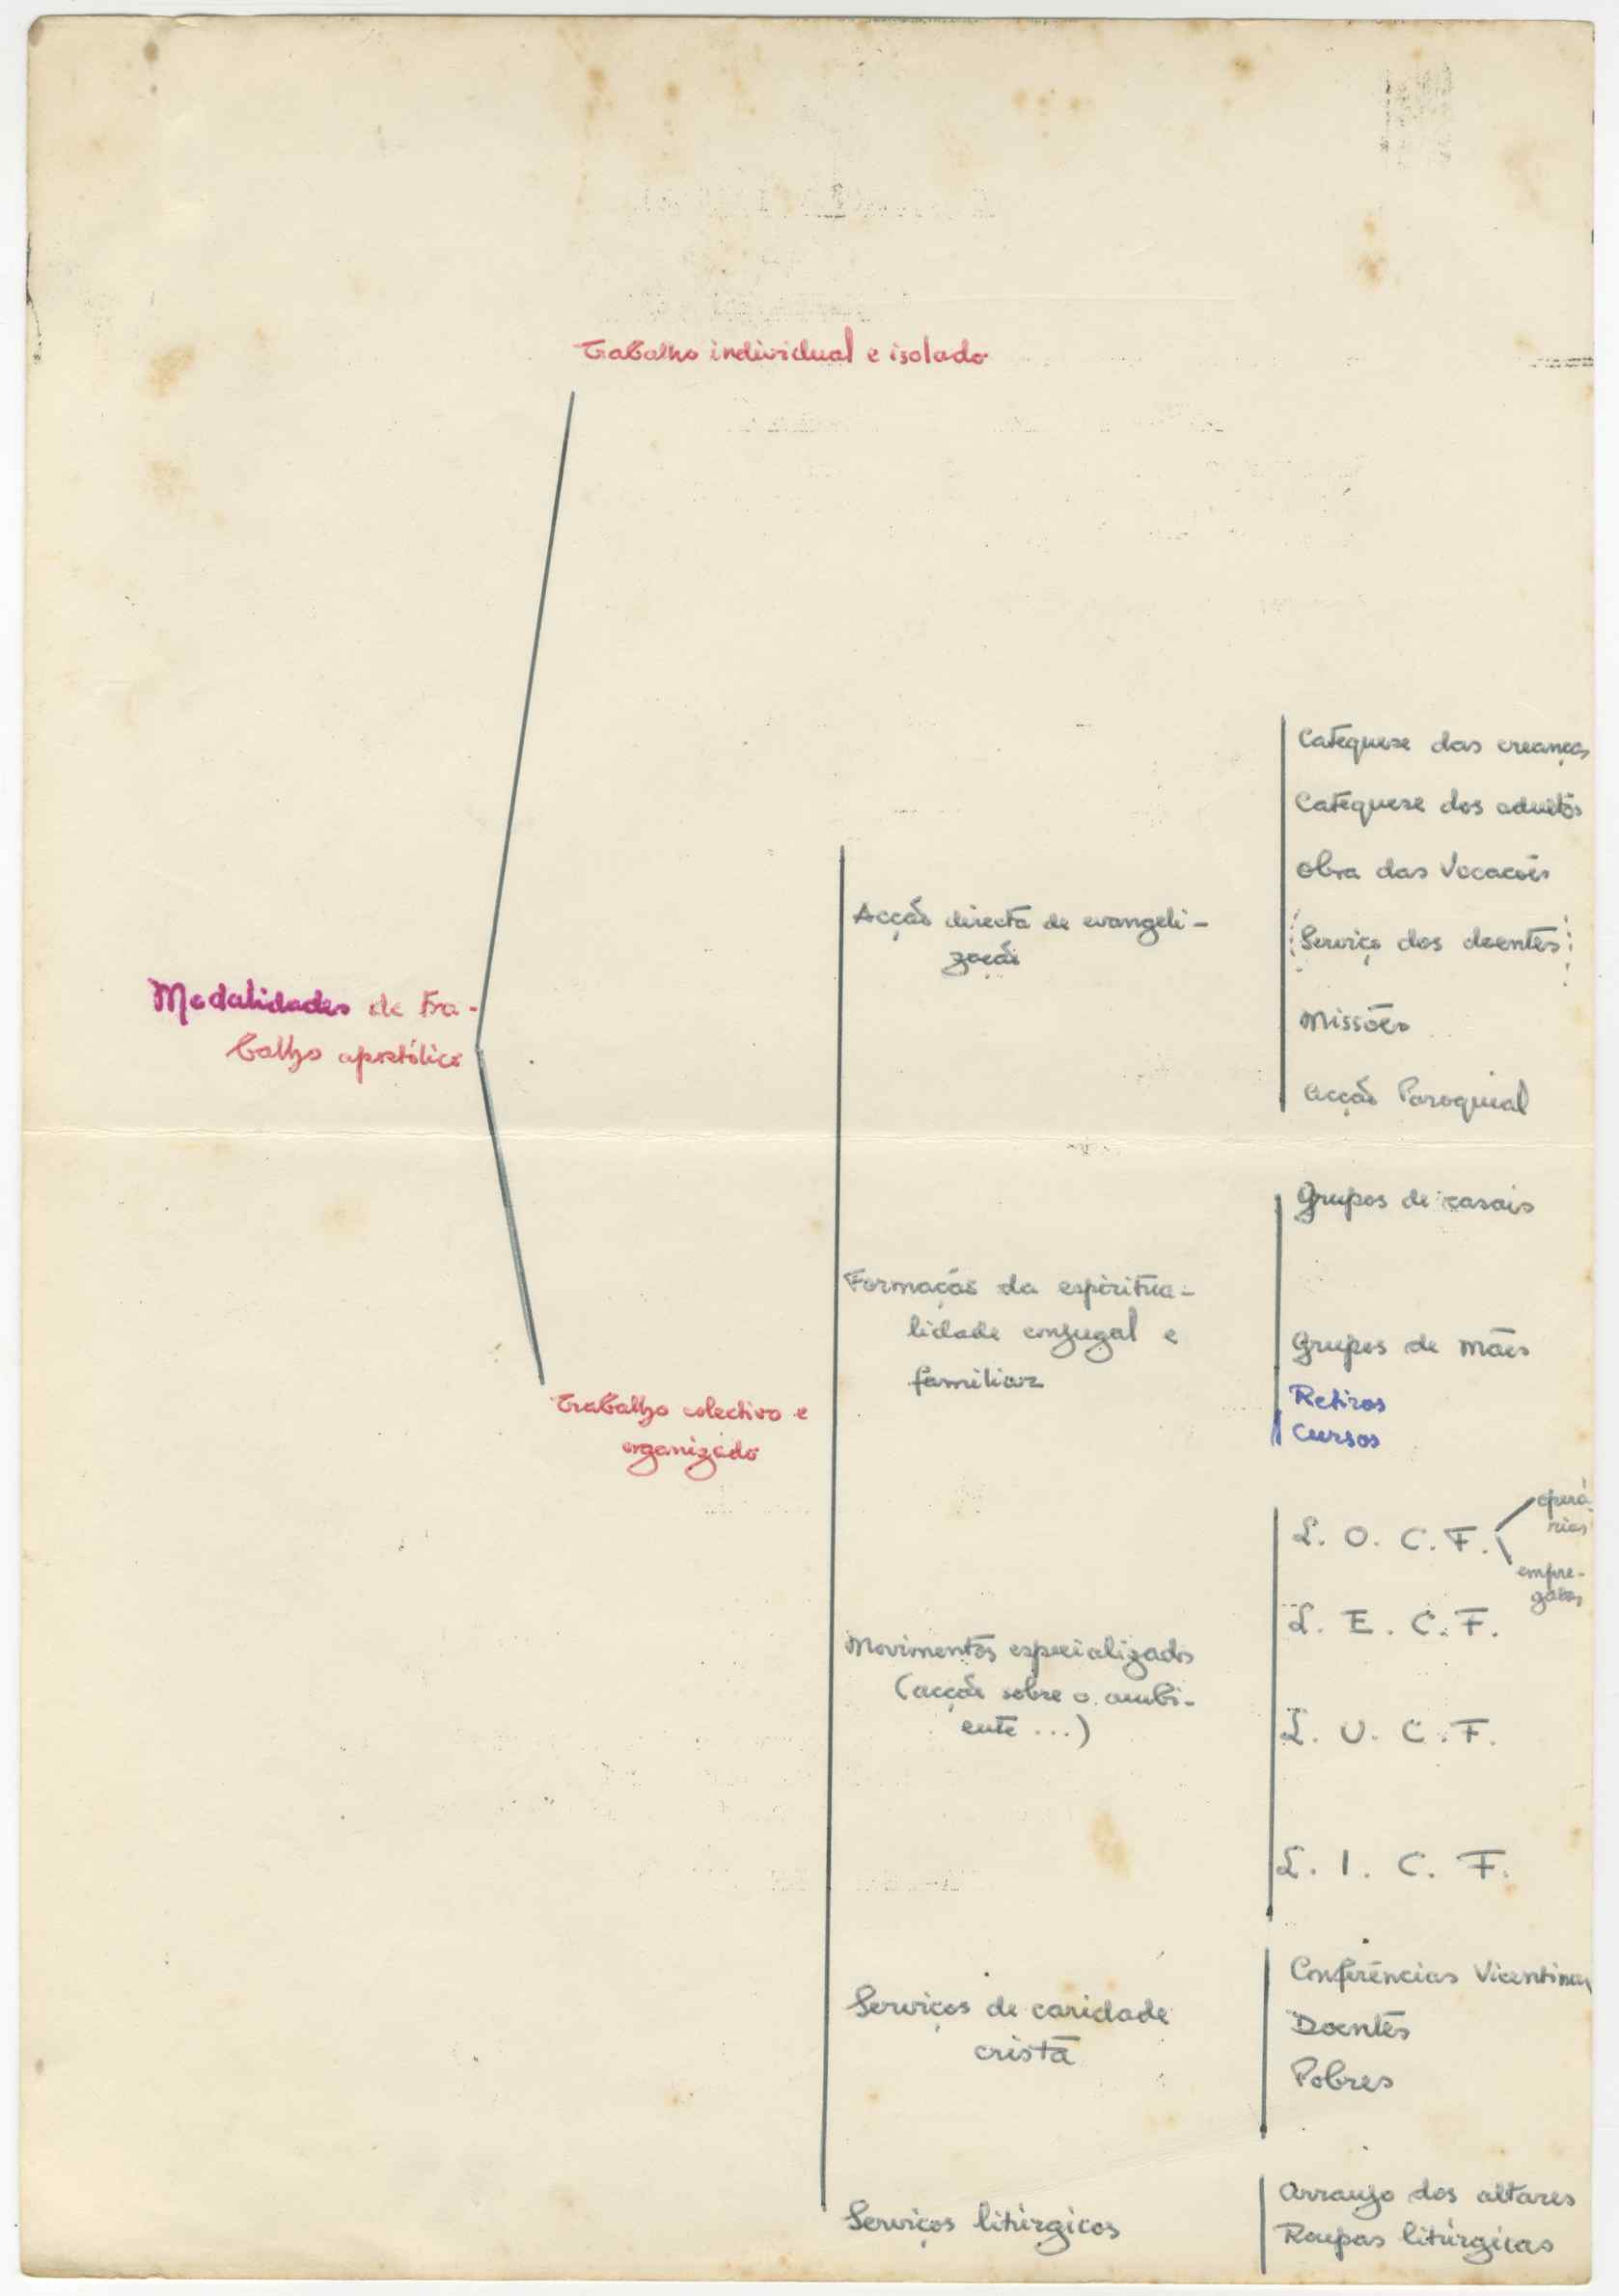 Trabalho individual e isolado
Modalidades de tra-
balho apostólico
Trabalho colectivo e
organizado
Acção directa de evangeli-
zação
Catequese das creanças
Catequese dos adultos
Obra das Vocacões
Serviço dos doentes
Missões
Acção Paroquial
Formação da espiritua-
lidade conjugal e
familiar
Grupos de casais
Grupos de mães
Retiros
Cursos
Movimentos especializados
(acção sobre o ambi-
ente ...)
L. O. C. F.
operá-
rias
empre-
gadas
L. E. C. F.
L. U. C. F.
L. I. C. F.
Serviços de caridade
cristã
Conferências Vicentinas
Doentes
Pobres
Serviços litúrgicos
Arranjo dos altares
Roupas litúrgicas